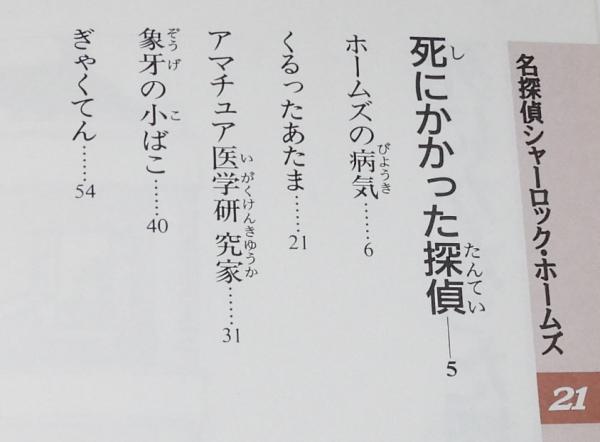 名探偵シャーロック・ホームズ
21
死にかかった探偵——5
ホームズの病気……6
くるったあたま……21
アマチュア医学研究家……31
象牙の小ばこ……40
ぎゃくてん……54